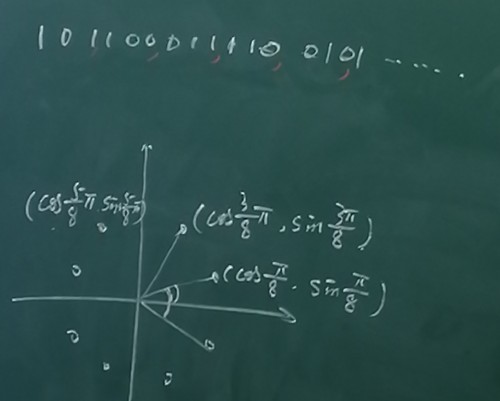 1 0 1 1 0 0 0 1 1 1 1 0 0 1 0 1 ......
(cos 5/8 π, sin 5/8 π)
(cos 3/8 π, sin 3π/8)
(cos π/8, sin π/8)